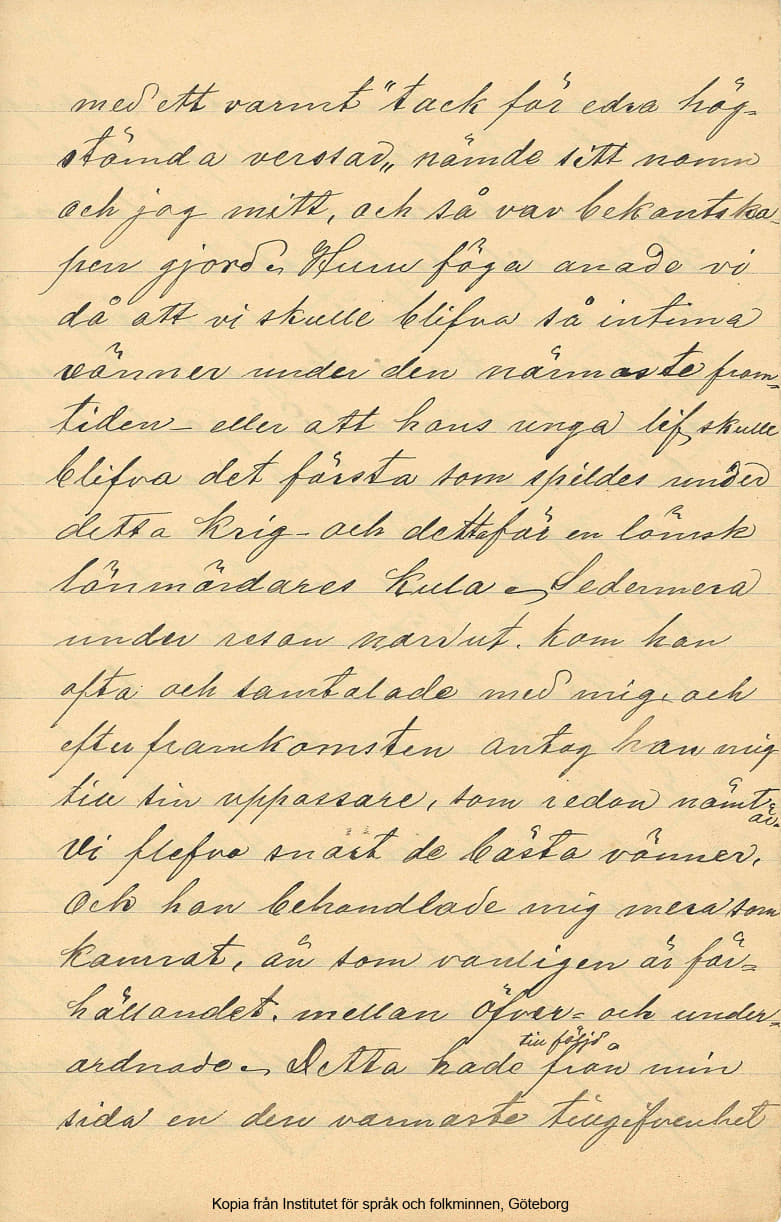 med ett varmt "tack för edra hög=
stämda verssar„ nämde sitt namn
och jag mitt, och så var bekantska-
pen gjord. Huru föga anade vi
då att vi skulle blifva så intima
vänner under den närmaste fram=
tiden – eller att hans unga lif skulle
blifva det första som spildes under
detta krig – och detta för en lömsk
lönmördares kula. Sedermera
under resan narrut. kom han
ofta och samtalade med mig. och
efter framkomsten antog han mig
till sin uppassare, som redan nämt är.
Vi flefvo snart de bästa vänner.
Och han behandlade mig mera som
kamrat, än som vanligen är för=
hållandet. mellan öfver= och under-
ordnade. Detta hade till följd från min
sida en den varmaste tillgifvenhet
Kopia från Institutet för språk och folkminnen, Göteborg